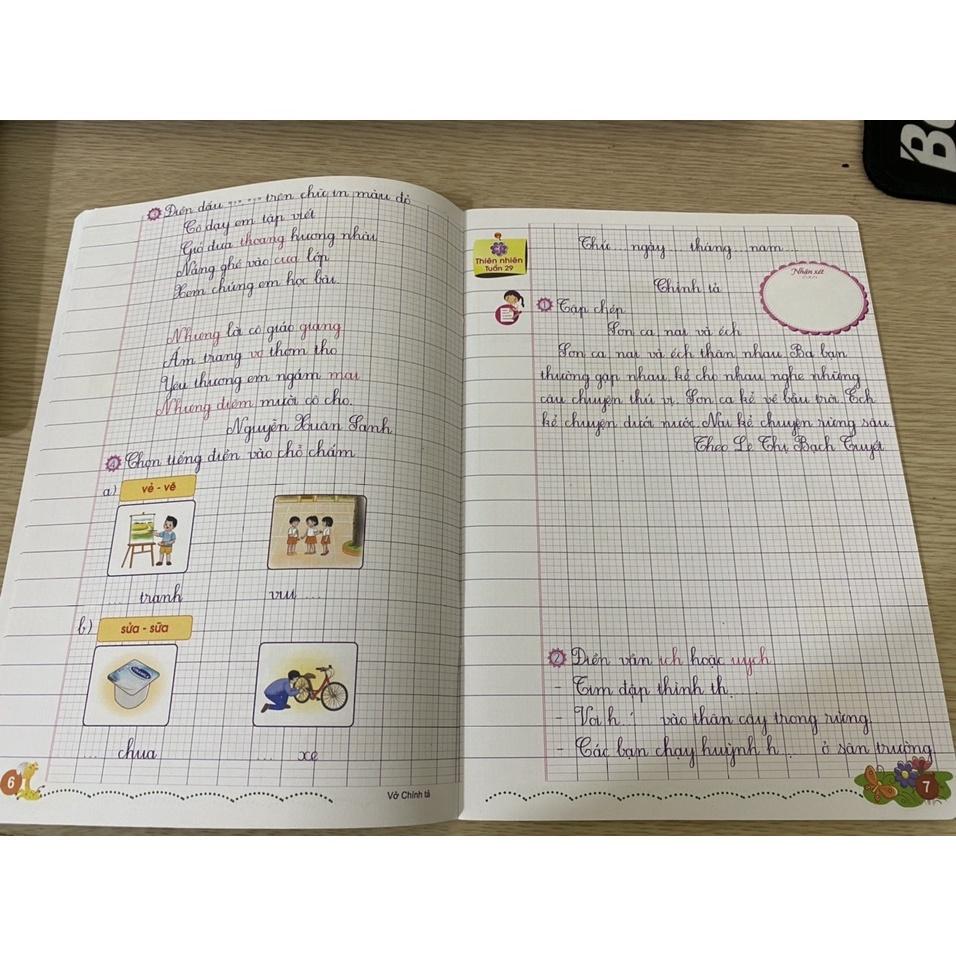 Điền dấu ... ... trên chữ in màu đỏ
Cô dạy em tập viết
Gió đưa thoang hương nhài
Nắng ghé vào cưa lớp
Xem chúng em học bài.
Nhưng lời cô giáo giang
Ấm trang vơ thơm tho
Yêu thương em ngắm mai
Nhưng điêm mười cô cho.
Nguyễn Xuân Sanh
4 Chọn tiếng điền vào chỗ chấm
a) vẻ - vẽ
... tranh vui ...
b) sửa - sữa
... chua ... xe
6
Vở Chính tả
Thiên nhiên
Tuần 29
Thứ ... ngày ... tháng ... năm ...
Nhận xét
Chính tả
1 Tập chép
Sơn ca, nai và ếch
Sơn ca, nai và ếch thân nhau. Ba bạn
thường gặp nhau, kể cho nhau nghe những
câu chuyện thú vị. Sơn ca kể về bầu trời. Ếch
kể chuyện dưới nước. Nai kể chuyện rừng sâu.
Theo Lê Thị Bạch Tuyết
2 Điền vần ich hoặc uych
- Tim đập thình th..
- Voi h.. vào thân cây trong rừng.
- Các bạn chạy huỳnh h... ở sân trường.
7